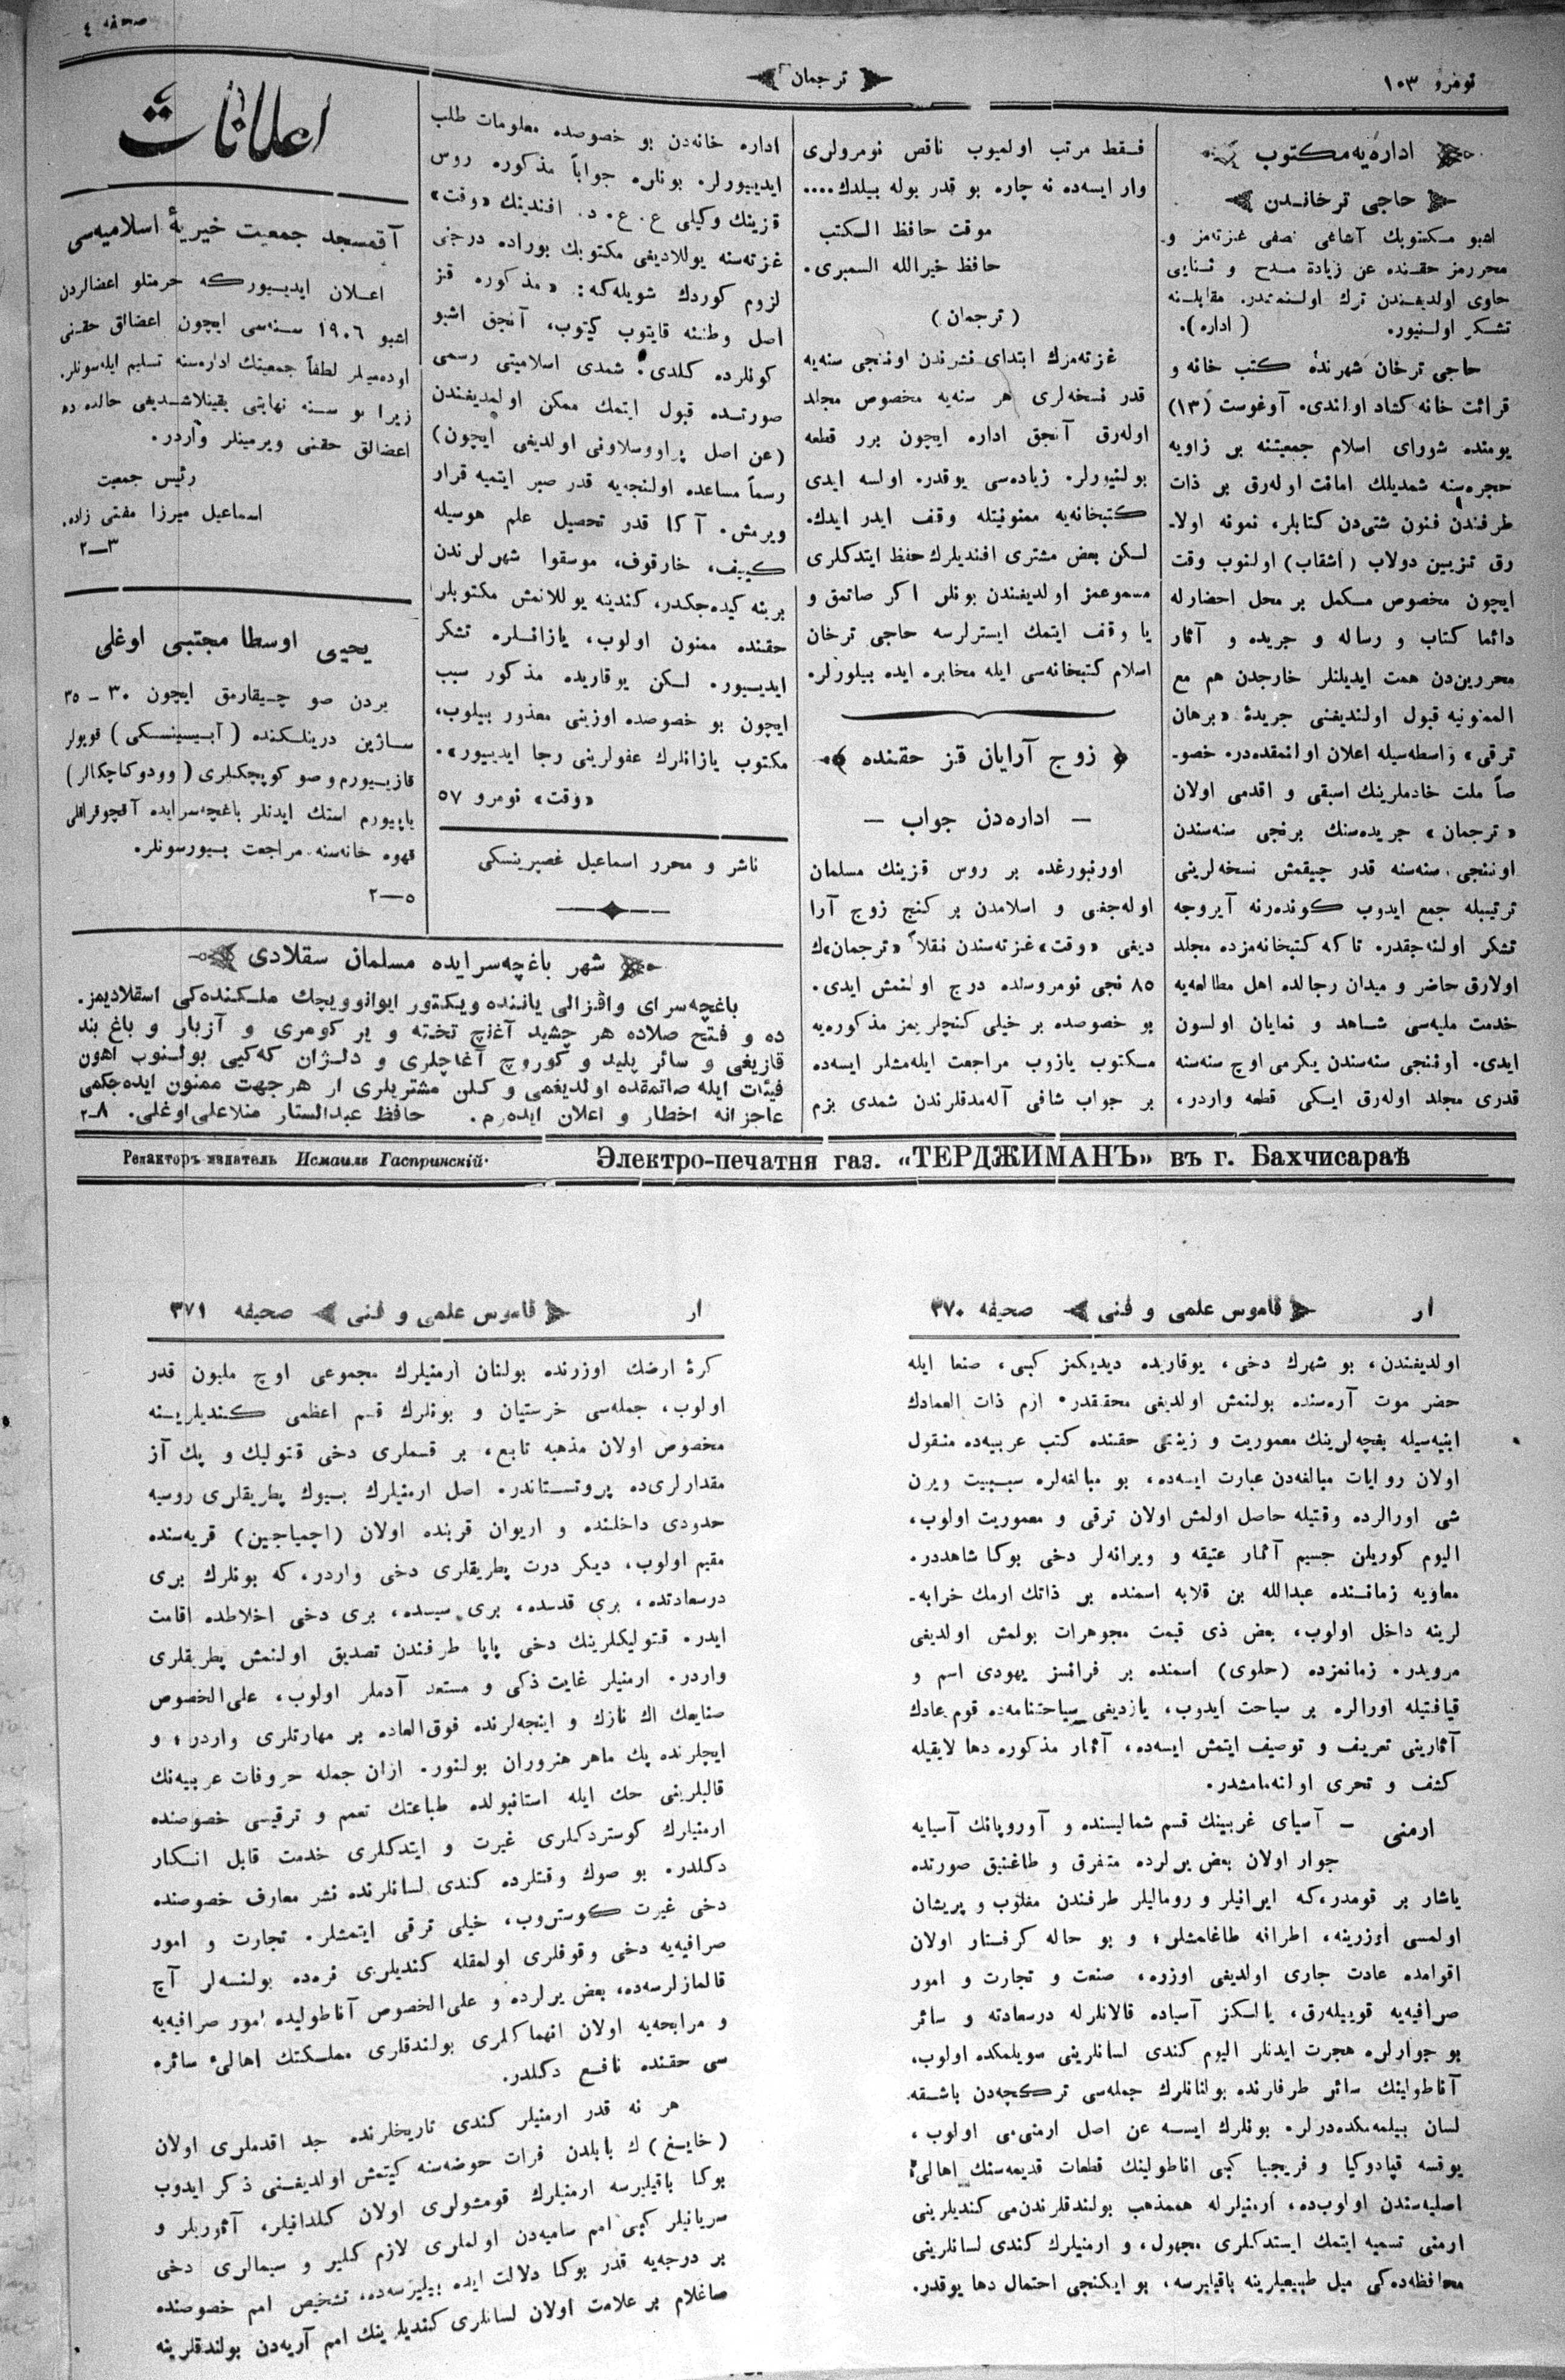 نومرو ١٠٣
ترجمان
صحفه ٤
اداره‌یه مكتوب
حاجی ترخاندن
اشبو مكتوبك آشاغی نصفی غزته‌مز و
محررمز حقنده عن زیادة مدح و ثنایی
حاوی اولدیغندن ترك اولنمشدر. مقابلنه
تشكر اولنیور. (اداره).
حاجی ترخان شهرنده كتب خانه و
قرائت خانه كشاد اولندی. آوغوست (١٣)
یومنده شورای اسلام جمعیتنه بر زاویه
حجره‌سنه شمدیلك امانت اوله‌رق بر ذات
طرفندن فنون شتی‌دن كتابلر، نمونه اولا-
رق تزیین دولاب (اشقاب) اولنوب وقت
ایچون مخصوص مكمل بر محل احضارله
دائما كتاب و رساله و جریده و آثار
محررین‌دن همت ایدیلنلر خارجدن هم مع
الممنونیه قبول اولندیغنی جریدهٔ «برهان
ترقی» واسطه‌سیله اعلان اولنمقده‌در. خصو-
صاً ملت خادملرینك اسبقی و اقدمی اولان
«ترجمان» جریده‌سنك برنجی سنه‌سندن
اوننجی سنه‌سنه قدر چیقمش نسخه‌لرینی
ترتیبله جمع ایدوب كوندرنه آیروجه
تشكر اولنه‌جقدر. تا كه كتبخانه‌مزده مجلد
اولارق حاضر و میدان رجالده اهل مطالعه‌یه
خدمت ملیه‌سی شاهد و نمایان اولسون
ایدی. اوننجی سنه‌سندن یكرمی اوچ سنه‌سنه
قدری مجلد اوله‌رق ایكی قطعه واردر،
فقط مرتب اولمیوب ناقص نومرولری
وار ایسه‌ده نه چاره بو قدر بوله بیلدك....
موقت حافظ الكتب
حافظ خیرالله السمبری.
(ترجمان)
غزته‌مزك ابتدای نشرندن اوننجی سنه‌یه
قدر نسخه‌لری هر سنه‌یه مخصوص مجلد
اوله‌رق آنجق اداره ایچون برر قطعه
بولنیورلر. زیاده‌سی یوقدر. اولسه ایدی
كتبخانه‌یه ممنونیتله وقف ایدر ایدك.
لكن بعض مشتری افندیلرك حفظ ایتدكلری
مسموعمز اولدیغندن بونلر اكر صاتمق و
یا وقف ایتمك ایسترلرسه حاجی ترخان
اسلام كتبخانه‌سی ایله مخابره ایده بیلورلر.
زوج آرایان قز حقنده
— اداره‌دن جواب —
اورنبورغده بر روس قزینك مسلمان
اوله‌جغی و اسلامدن بر كنج زوج آرا
دیغی «وقت» غزته‌سندن نقلاً «ترجمان»ك
٨٥ نجی نومروسنده درج اولنمش ایدی.
بو خصوصده بر خیلی كنچلریمز مذكوره‌یه
مكتوب یازوب مراجعت ایله‌مشلر ایسه‌ده
بر جواب شافی آله‌مدقلرندن شمدی بزم
اداره خانه‌دن بو خصوصده معلومات طلب
ایدییورلر. بونلره جواباً مذكوره روس
قزینك وكیلی ع. ع. د. افندینك «وقت»
غزته‌سنه یوللادیغی مكتوبك بوراده درجنی
لزوم كوردك شویله‌كه: «مذكوره قز
اصل وطننه قایتوب كیتوب، آنجق اشبو
كونلرده كلدی. شمدی اسلامیتی رسمی
صورتده قبول ایتمك ممكن اولمدیغندن
(عن اصل پراووسلاونی اولدیغی ایچون)
رسماً مساعده اولنجه‌یه قدر صبر ایتمیه قرار
ویرمش. آكا قدر تحصیل علم هوسیله
كییف، خارقوف، موسقوا شهرلرندن
برینه كیده‌جكدر، كندینه یوللانمش مكتوبلر
حقنده ممنون اولوب، یازانلره تشكر
ایدییور. لكن یوقاریده مذكور سبب
ایچون بو خصوصده اوزینی معذور بیلوب،
مكتوب یازانلرك عفولرینی رجا ایدییور».
«وقت» نومرو ٥٧
ناشر و محرر اسماعیل غصپرینسكی
اعلانات
آقمسجد جمعیت خیریهٔ اسلامیه‌سی
اعلان ایدییوركه حرمتلو اعضالردن
اشبو ١٩٠٦ سنه‌سی ایچون اعضالق حقنی
اوده‌میلر لطفاً جمعیتك اداره‌سنه تسلیم ایله‌سونلر.
زیرا بو سنه نهایتی یقینلاشدیغی حالده ده
اعضالق حقنی ویرمینلر واردر.
رئیس جمعیت
اسماعیل میرزا مفتی زاده.
٣—٢
یحیی اوسطا مجتبی اوغلی
یردن صو چیقارمق ایچون ٣٠ - ٣٥
ساژین درینلكنده (آبیسینسكی) قویولر
قازییورم و صو كوپچكلری (وودوكاچكالر)
یاپیورم استك ایدنلر باغچه‌سرایده آقچوقراقلی
قهوه خانه‌سنه مراجعت بیورسونلر.
٥—٢
شهر باغچه‌سرایده مسلمان سقلادی
باغچه‌سرای واقزالی یاننده ویكتور ایوانوویچك ملكنده‌كی اسقلادیمز.
ده و فتح صلاده هر چشید آغاچ تخته و یر كومری و آزبار و باغ بند
قازیغی و سائر پلید و كوروچ آغاچلری و دلژان كه‌كیی بولنوب اهون
فیئات ایله صاتمقده اولدیغمی و كلن مشتریلری ار هرجهت ممنون ایده‌جكمی
عاجزانه اخطار و اعلان ایده‌رم. حافظ عبدالستار منلاعلی‌اوغلی. ٨—٢
Редакторъ-издатель Исмаилъ Гаспринскій.
Электро-печатня газ. «ТЕРДЖИМАНЪ» въ г. Бахчисараѣ
ار قاموس علمی و فنی صحیفه ٣٧٠
اولدیغندن، بو شهرك دخی، یوقاریده دیدیكمز كبی، صنعا ایله
حضر موت آره‌سنده بولنمش اولدیغی محققدر. ارم ذات العمادك
ابنیه‌سیله بغچه‌لرینك معموریت و زینتی حقنده كتب عربیه‌ده منقول
اولان روایات مبالغه‌دن عبارت ایسه‌ده، بو مبالغه‌لره سببیت ویرن
شی اورالرده وقتیله حاصل اولمش اولان ترقی و معموریت اولوب،
الیوم كوریلن جسیم آثار عتیقه و ویرانه‌لر دخی بوكا شاهددر.
معاویه زماننده عبدالله بن قلابه اسمنده بر ذاتك ارمك خرابه-
لرینه داخل اولوب، بعض ذی قیمت مجوهرات بولمش اولدیغی
مرویدر. زمانمزده (حلوی) اسمنده بر فرانسز یهودی اسم و
قیافتیله اورالره بر سیاحت ایدوب، یازدیغی سیاحتنامه‌ده قوم عادك
آثارینی تعریف و توصیف ایتمش ایسه‌ده، آثار مذكوره دها لایقیله
كشف و تحری اولنه‌مامشدر.
ارمنی — آسیای غربینك قسم شمالیسنده و آوروپانك آسیایه
جوار اولان بعض یرلرده متفرق و طاغنیق صورتده
یاشار بر قومدر،كه ایرانیلر و رومالیلر طرفندن مغلوب و پریشان
اولمسی اوزرینه، اطرافه طاغامشلر؛ و بو حاله كرفتار اولان
اقوامده عادت جاری اولدیغی اوزره، صنعت و تجارت و امور
صرافیه‌یه قوییله‌رق، یالكز آسیاده قالانلرله درسعادته و سائر
بو جوارلره هجرت ایدنلر الیوم كندی لسانلرینی سویلمكده اولوب،
آناطولینك سائر طرفلرنده بولنانلرك جمله‌سی تركچه‌دن باشقه
لسان بیلمه‌مكده‌درلر. بونلرك ایسه عن اصل ارمنی‌می اولوب،
یوقسه قپادوكیا و فریجیا كبی اناطولینك قطعات قدیمه‌سنك اهالیٔ
اصلیه‌سندن اولوب‌ده، ارمنیلرله هممذهب بولندقلرندن‌می كندیلرینی
ارمنی تسمیه ایتمك ایستدكلری مجهول، و ارمنیلرك كندی لسانلرینی
محافظه‌ده‌كی میل طبیعیلرینه باقیلیرسه، بو ایكنجی احتمال دها یوقدر.
ار قاموس علمی و فنی صحیفه ٣٧١
كرهٔ ارضك اوزرنده بولنان ارمنیلرك مجموعی اوچ ملیون قدر
اولوب، جمله‌سی خرستیان و بونلرك قسم اعظمی كندیلرینه
مخصوص اولان مذهبه تابع، بر قسملری دخی قتولیك و پك آز
مقدارلری‌ده پروتستاندر. اصل ارمنیلرك بیوك پطریقلری روسیه
حدودی داخلنده و اریوان قربنده اولان (اچمیاجین) قریه‌سنده
مقیم اولوب، دیكر درت پطریقلری دخی واردر، كه بونلرك بری
درسعادتده، بری قدسده، بری سیسده، بری دخی اخلاطده اقامت
ایدر. قتولیكلرینك دخی پاپا طرفندن تصدیق اولنمش پطریقلری
واردر. ارمنیلر غایت ذكی و مستعد آدملر اولوب، علی‌الخصوص
صنایعك اك نازك و اینجه‌لرنده فوق‌العاده بر مهارتلری واردر؛ و
ایچلرنده پك ماهر هنروران بولنور. ازان جمله حروفات عربیه‌نك
قالبلرینی حك ایله استانبولده طباعتك تعمم و ترقیسی خصوصنده
ارمنیلرك كوستردكلری غیرت و ایتدكلری خدمت قابل انكار
دكلدر. بو صوك وقتلرده كندی لسانلرنده نشر معارف خصوصنده
دخی غیرت كوستروب، خیلی ترقی ایتمشلر. تجارت و امور
صرافیه‌یه دخی وقوفلری اولمقله كندیلری نره‌ده بولنسه‌لر آچ
قالمازلرسه‌ده، بعض یرلرده و علی‌الخصوص آناطولیده امور صرافیه‌یه
و مرابحه‌یه اولان انهماكلری بولندقلری مملكتك اهالیٔ سائره
سی حقنده نافع دكلدر.
هر نه قدر ارمنیلر كندی تاریخلرنده جد اقدملری اولان
(خایغ) ك بابلدن فرات حوضه‌سنه كیتمش اولدیغنی ذكر ایدوب
بوكا باقیلیرسه ارمنیلرك قومشولری اولان كلدانیلر، آثوریلر و
سریانیلر كبی امم سامیه‌دن اولملری لازم كلیر و سیمالری دخی
بر درجه‌یه قدر بوكا دلالت ایده بیلیرسه‌ده، تشخیص امم خصوصنده
صاغلام بر علامت اولان لسانلری كندیلرینك امم آریه‌دن بولندقلرینه